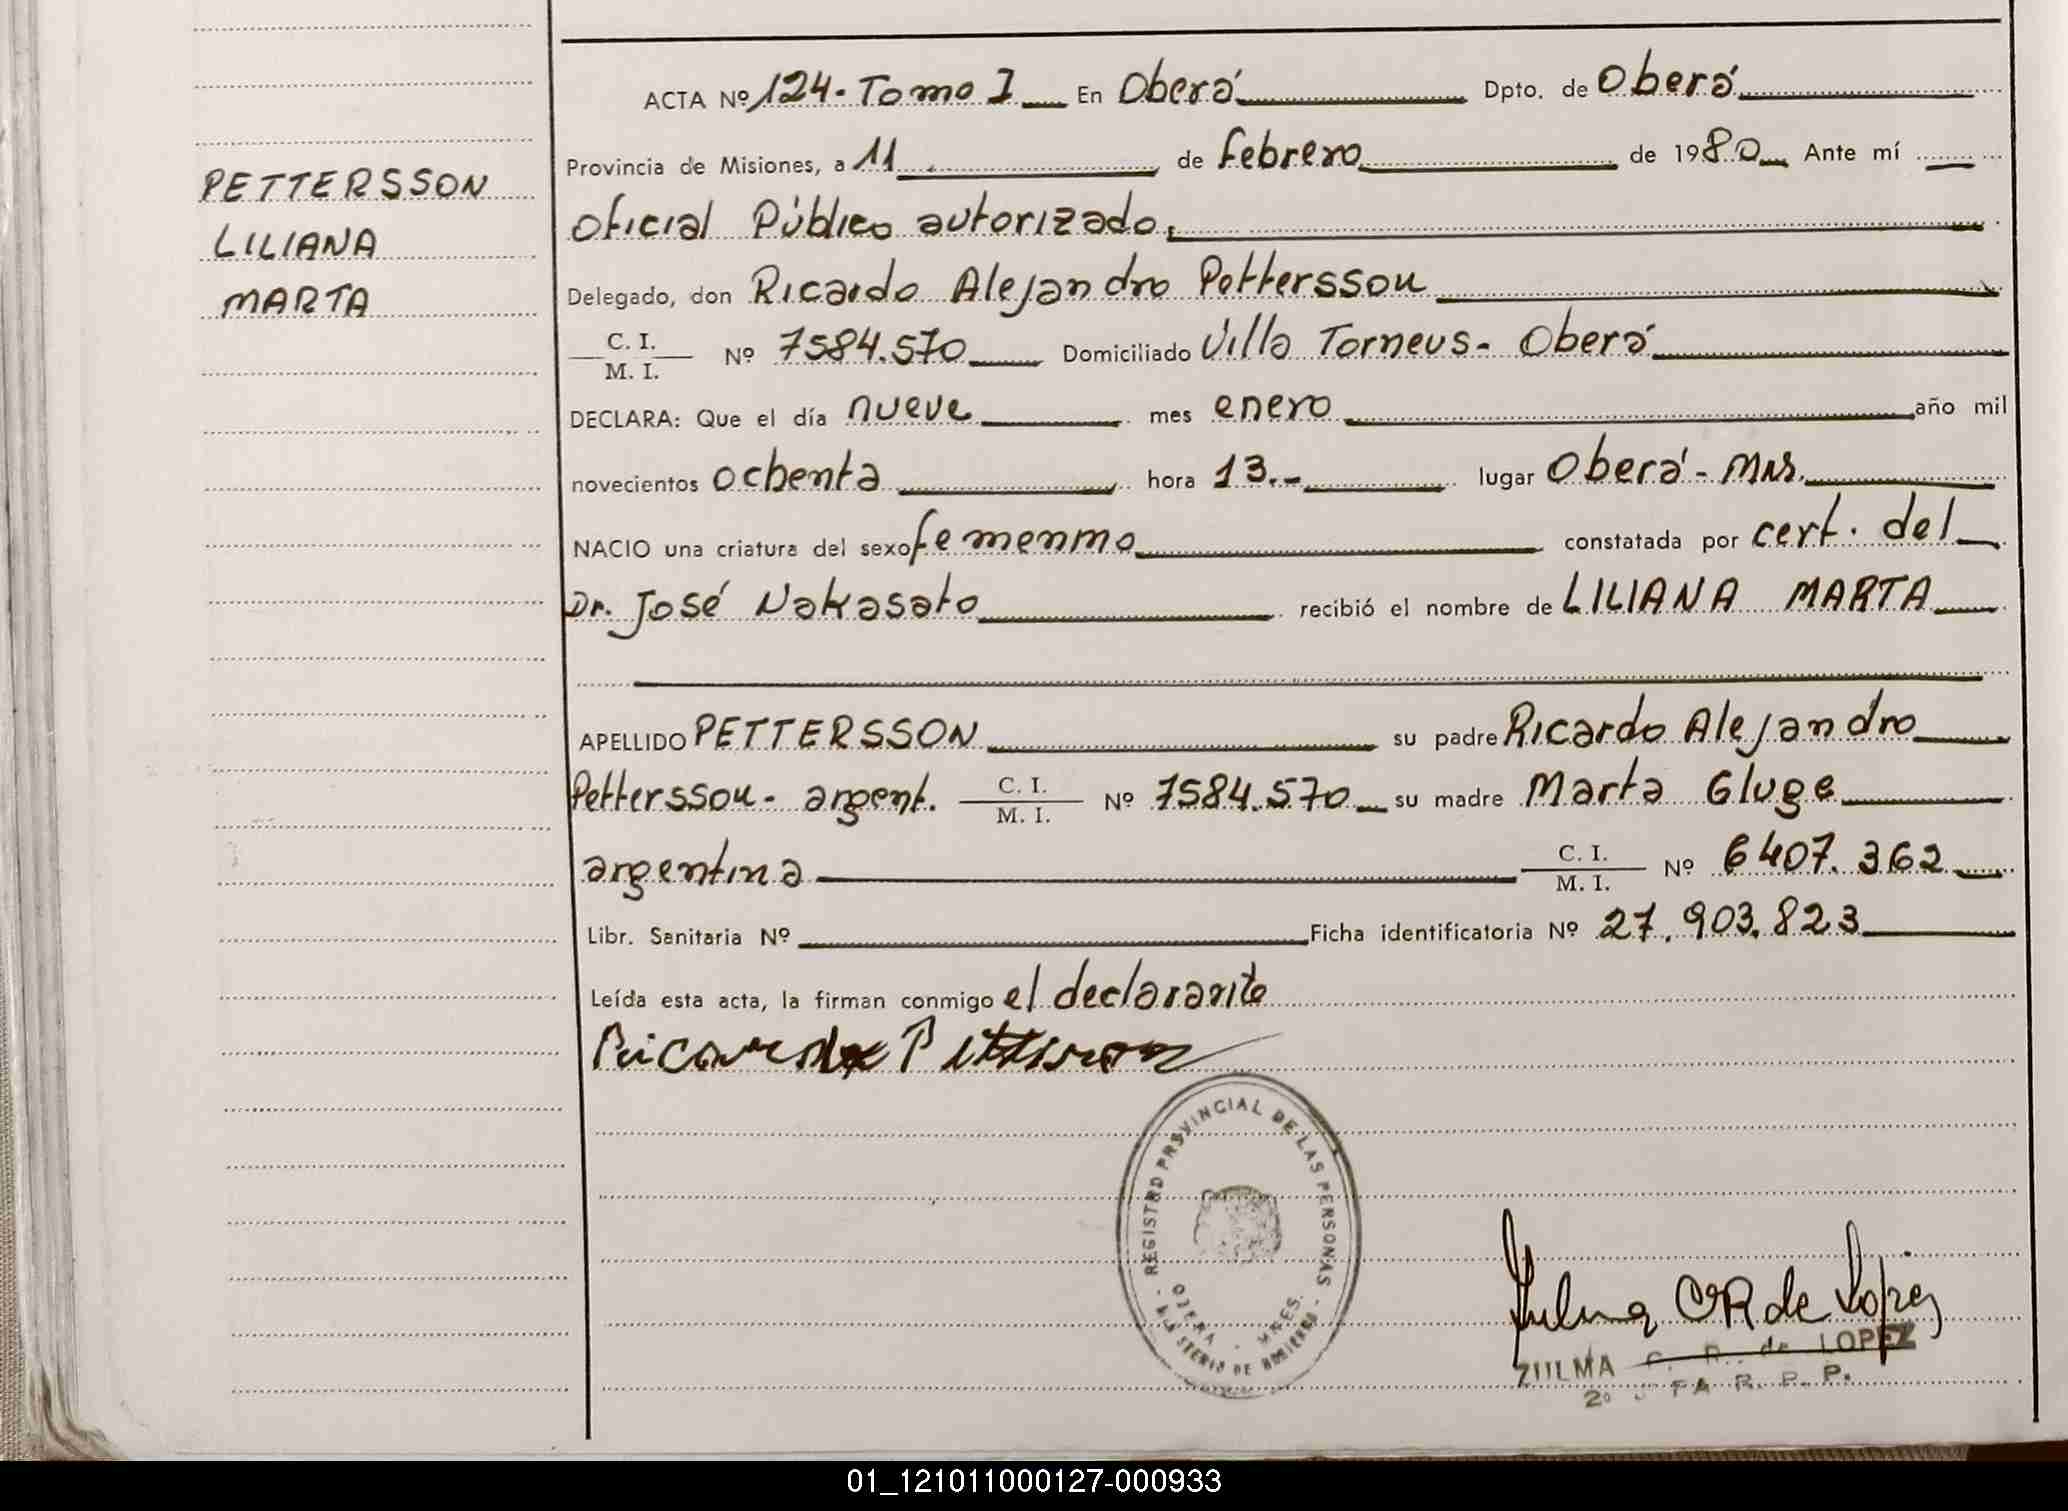 PETTERSSON
LILIANA
MARTA
ACTA Nº 124 - Tomo I En Oberá Dpto. de Oberá
Provincia de Misiones, a 11 de febrero de 1980 Ante mí
Oficial Público autorizado,
Delegado, don Ricardo Alejandro Pettersson
C. I.
M. I.
Nº 7584.570 Domiciliado Villa Torneus - Oberá
DECLARA: Que el día nueve mes enero año mil
novecientos ochenta hora 13.- lugar Oberá - Mns.
NACIO una criatura del sexo femenino constatada por cert. del
Dr. José Nakasato recibió el nombre de LILIANA MARTA
APELLIDO PETTERSSON su padre Ricardo Alejandro
Pettersson - argent. C. I. Nº 7584.570 su madre Marta Gluge
M. I.
argentina C. I. Nº 6407.362
M. I.
Libr. Sanitaria Nº Ficha identificatoria Nº 27.903.823
Leída esta acta, la firman conmigo el declarante
Ricardo Pettersson
REGISTRO PROVINCIAL DE LAS PERSONAS
OBERA - MNES.
MINISTERIO DE GOBIERNO
Zulma C R de Lopez
ZULMA C. R. de LOPEZ
2º JEFA R. P. P.
01_121011000127-000933